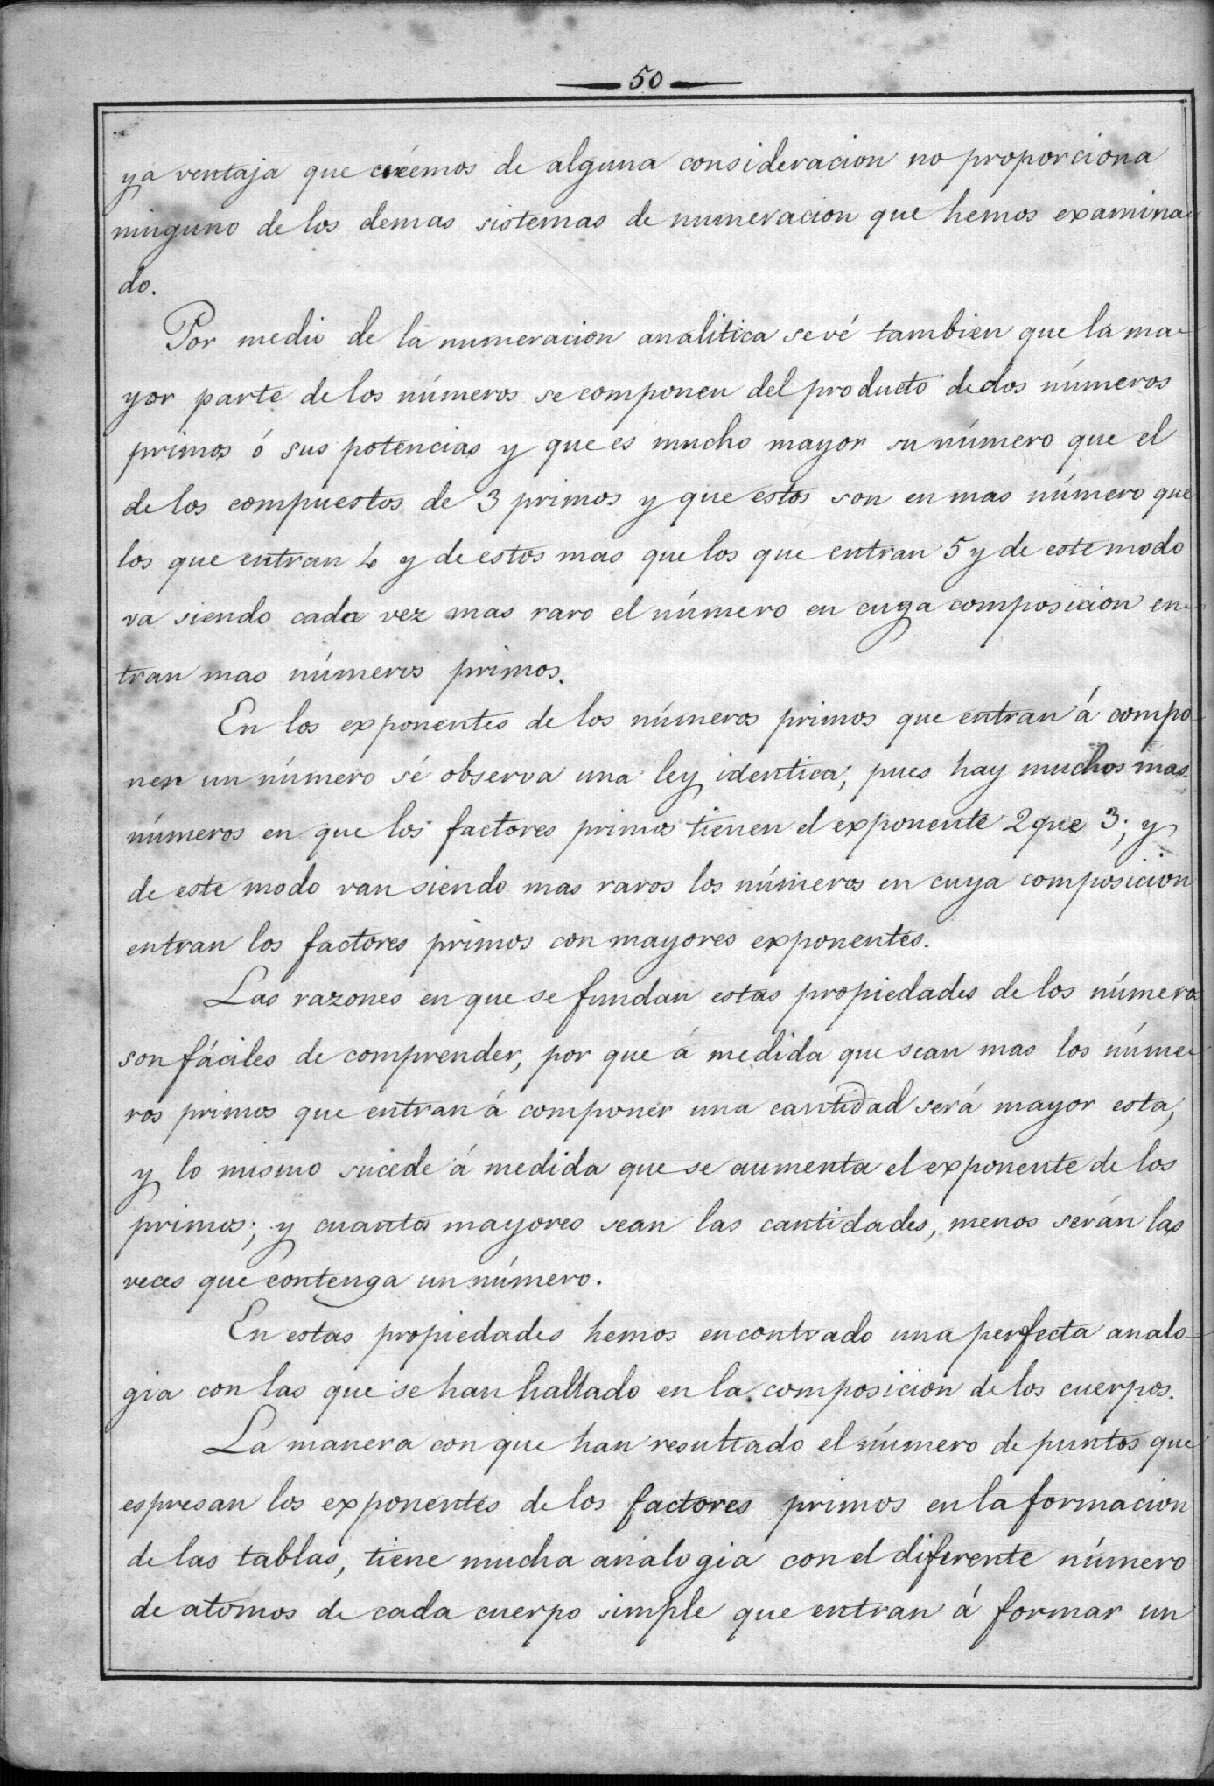 50
ya ventaja que creémos de alguna consideracion no proporciona
ninguno de los demas sistemas de numeracion que hemos examina-
do.
Por medio de la numeracion analitica se vé tambien que la ma-
yor parte de los números se componen del producto de dos números
primos ó sus potencias y que es mucho mayor su número que el
de los compuestos de 3 primos y que estos son en mas número que
los que entran 4 y de estos mas que los que entran 5 y de este modo
va siendo cada vez mas raro el número en cuya composicion en-
tran mas números primos.
En los exponentes de los números primos que entran á compo-
ner un número sé observa una ley identica; pues hay muchos mas
números en que los factores primos tienen el exponente 2 que 3; y
de este modo van siendo mas raros los números en cuya composicion
entran los factores primos con mayores exponentes.
Las razones en que se fundan estas propiedades de los números
son fáciles de comprender, por que á medida que sean mas los núme-
ros primos que entran á componer una cantidad será mayor esta,
y lo mismo sucede á medida que se aumenta el exponente de los
primos; y cuanto mayores sean las cantidades, menos serán las
veces que contenga un número.
En estas propiedades hemos encontrado una perfecta analo-
gia con las que se han hallado en la composicion de los cuerpos.
La manera con que han resultado el número de puntos que
espresan los exponentes de los factores primos en la formacion
de las tablas, tiene mucha analogia con el diferente número
de atomos de cada cuerpo simple que entran á formar un